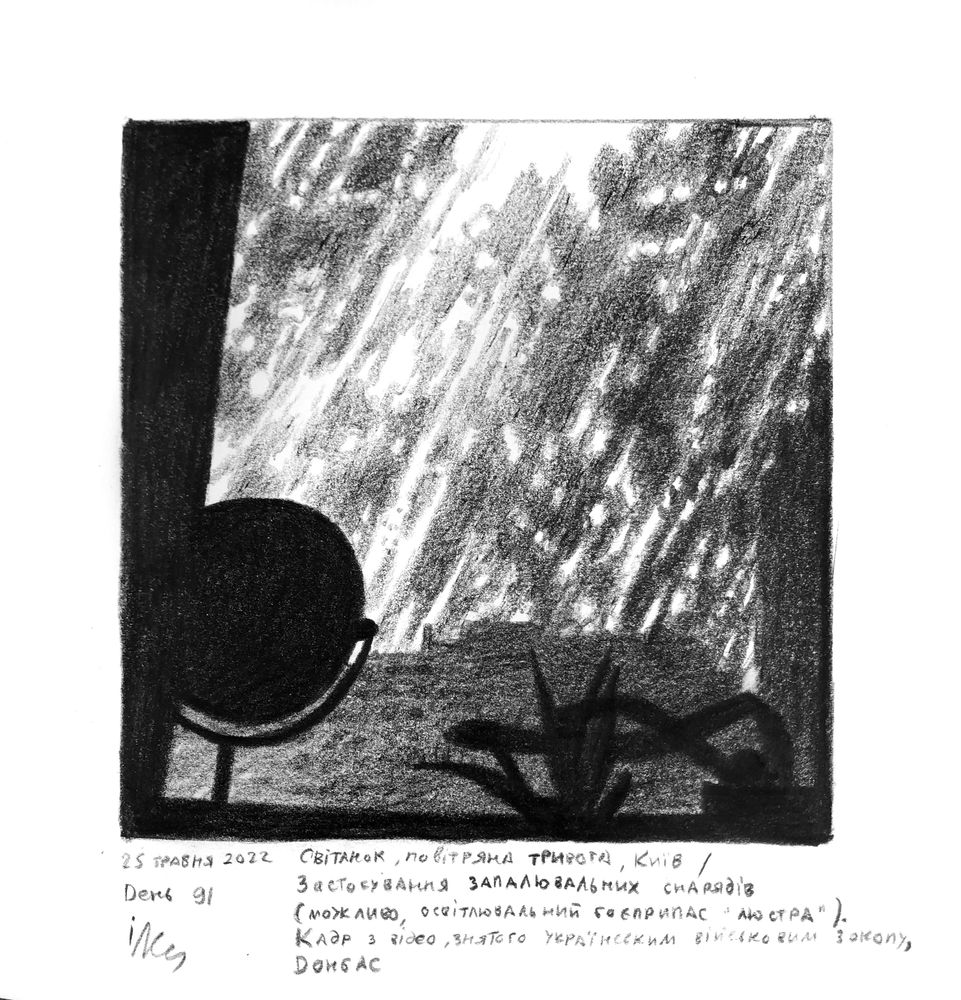 25 травня 2022 Світанок, повітряна тривога, Київ /
День 91 Застосування запалювальних снарядів
(можливо, освітлювальний боєприпас "люстра").
Кадр з відео, знятого українським військовим з окопу,
Донбас